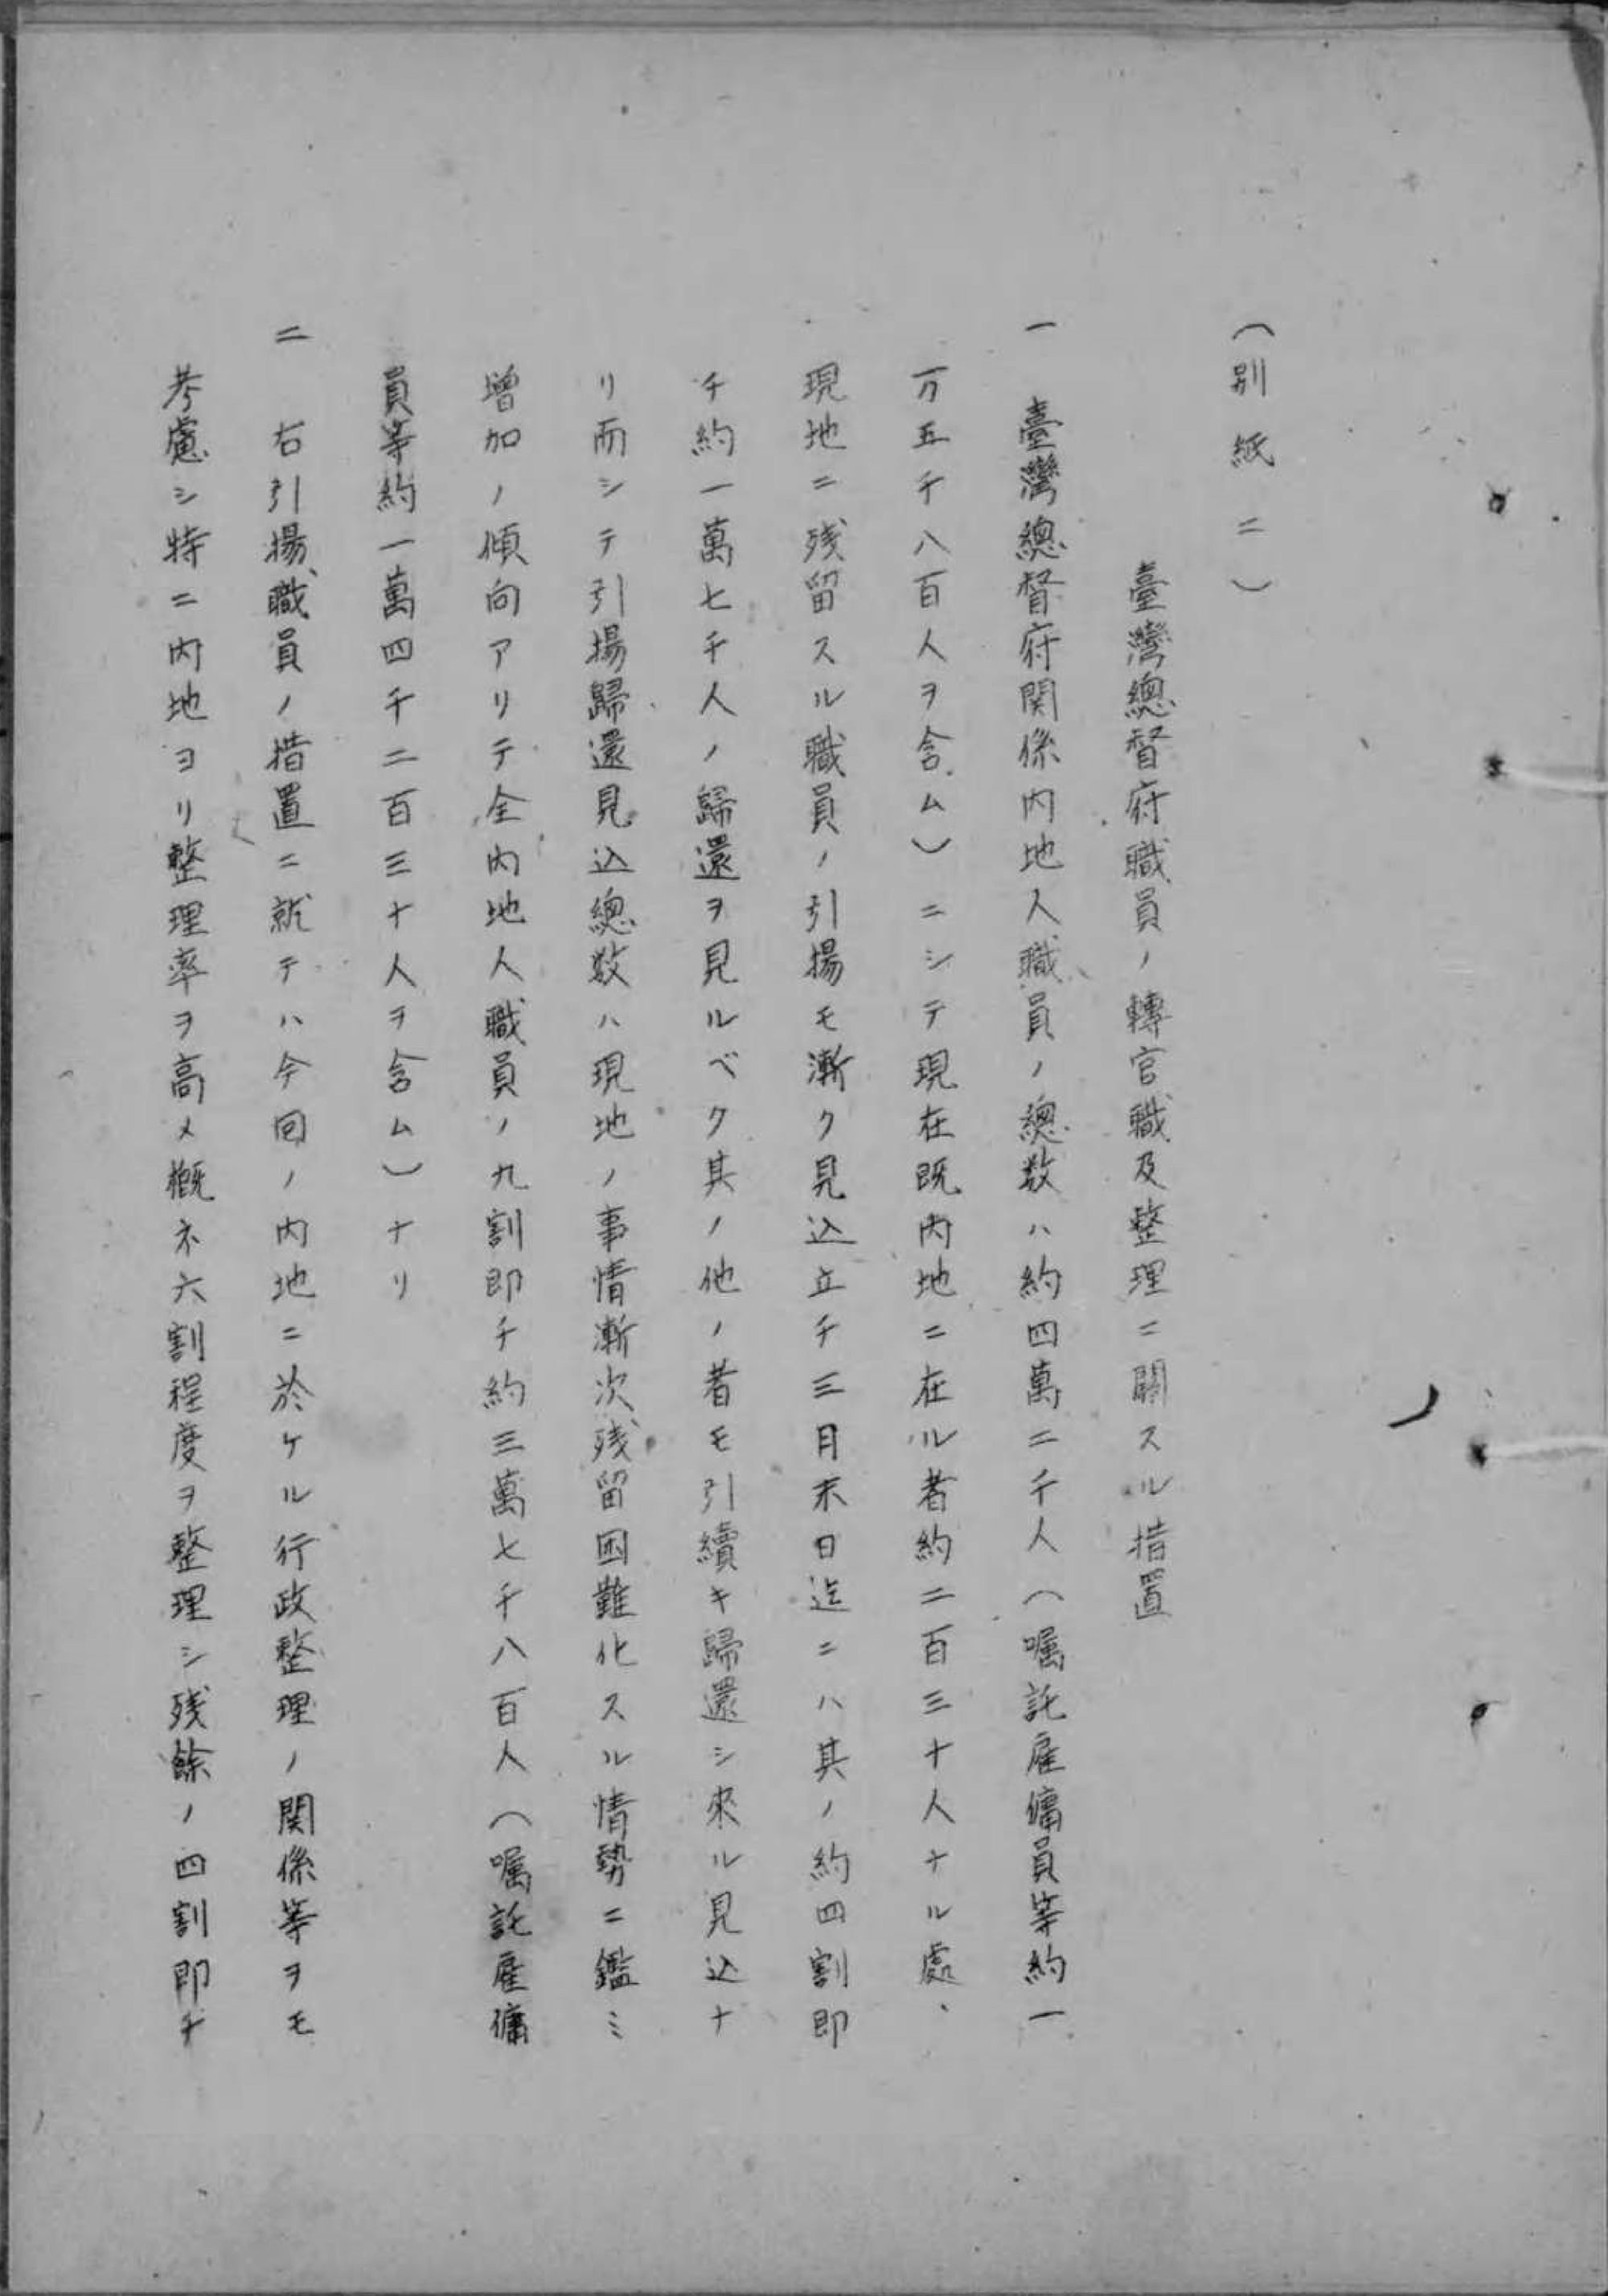 (別紙二)
臺灣總督府職員ノ轉官職及整理ニ關スル措置
一 臺灣總督府関係内地人職員ノ總数ハ約四萬二千人(嘱託雇傭員等約一
万五千八百人ヲ含ム)ニシテ現在既内地ニ在ル者約二百三十人ナル處、
現地ニ残留スル職員ノ引揚モ漸ク見込立チ三月末日迄ニハ其ノ約四割即
チ約一萬七千人ノ歸還ヲ見ルベク其ノ他ノ者モ引續キ歸還シ來ル見込ナ
リ而シテ引揚歸還見込總数ハ現地ノ事情漸次残留困難化スル情勢ニ鑑ミ
増加ノ傾向アリテ全内地人職員ノ九割即チ約三萬七千八百人(嘱託雇傭
員等約一萬四千二百三十人ヲ含ム)ナリ
二 右引揚職員ノ措置ニ就テハ今回ノ内地ニ於ケル行政整理ノ関係等ヲモ
考慮シ特ニ内地ヨリ整理率ヲ高メ概ネ六割程度ヲ整理シ残餘ノ四割即チ